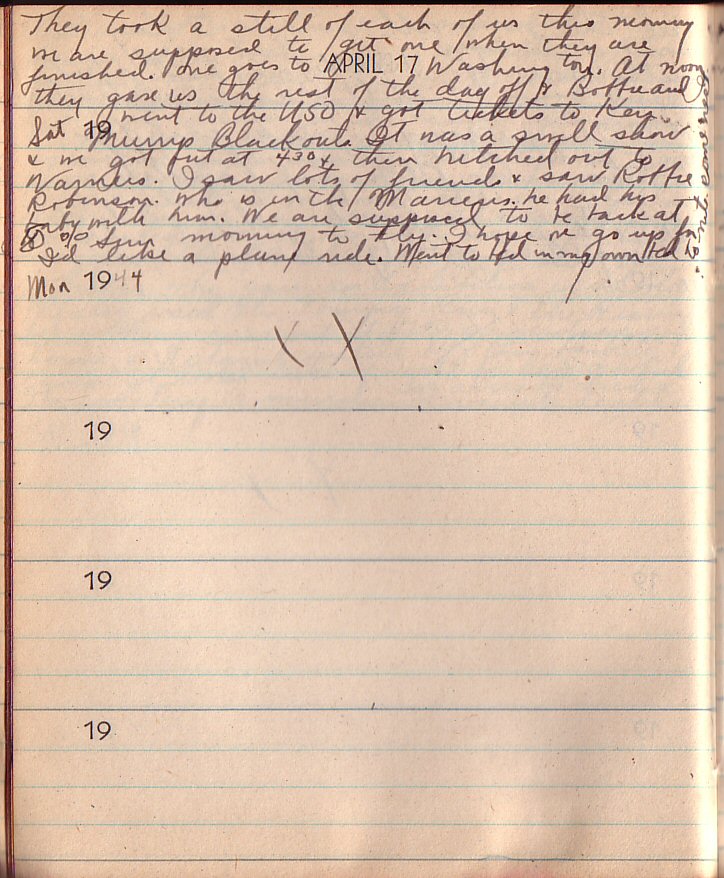 They took a still of each of us this morning
we are supposed to get one when they are
finished. One goes to Washington. At noon
APRIL 17
they gave us the rest of the day off & Bobbie and
I went to the USO & got tickets to Ken
Sat 19
Murrys Blackouts. It was a swell show
& we got out at 430 & then hitched out to
Warners. I saw lots of friends & saw Robbie
Robinson. Who is in the Marines. he had his
baby with him. We are supposed to be back at
8 00 Sun morning to fly. I hope we go up for
I'd like a plane ride. Went to bed in my own bed
Mon 1944
19
19
19